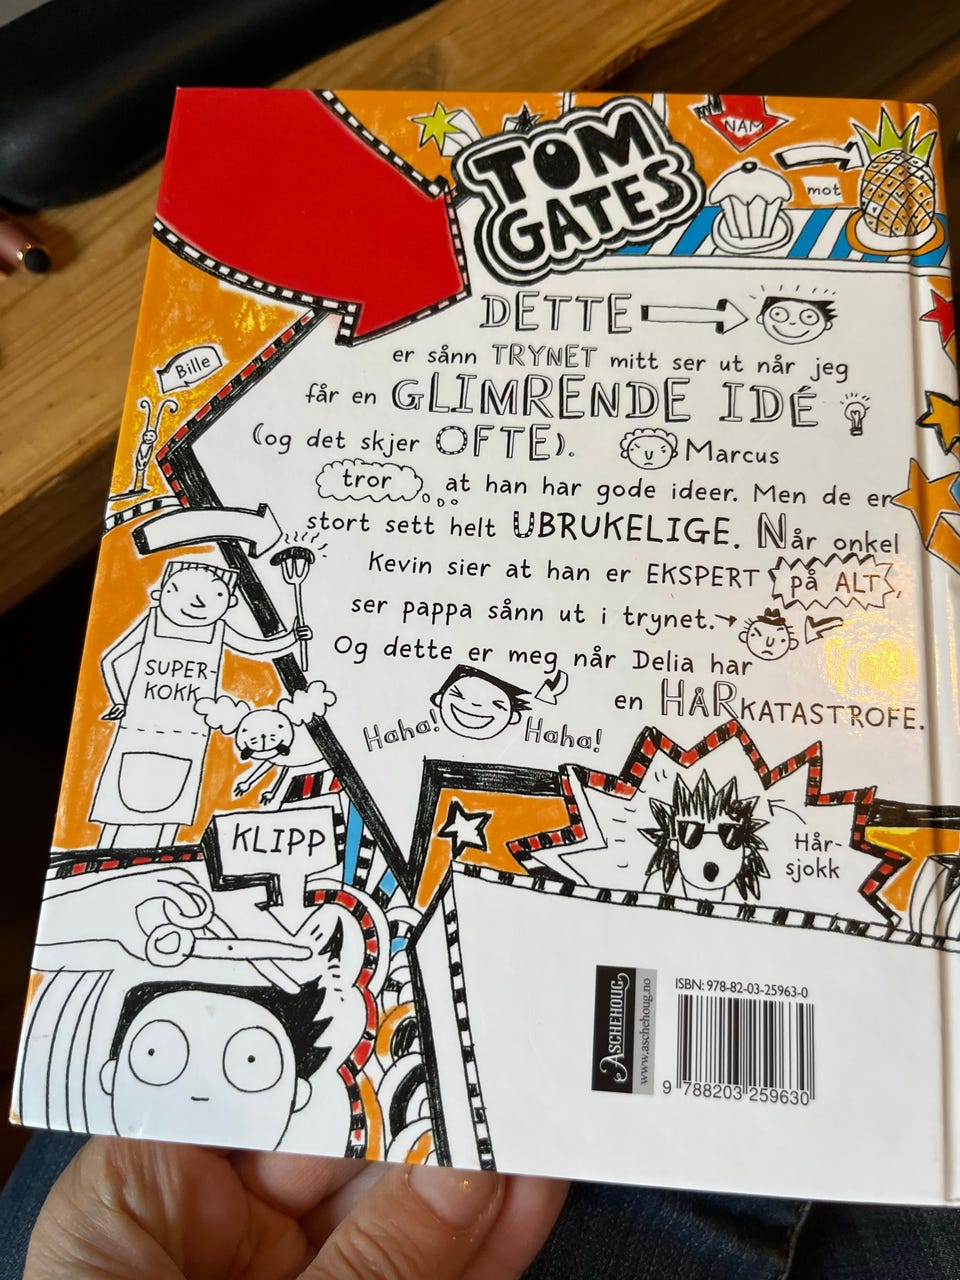 NAM
TOM
GATES
mot
DETTE
er sånn TRYNET mitt ser ut når jeg
får en GLIMRENDE IDÉ
(og det skjer OFTE).
Marcus
tror at han har gode ideer. Men de er
stort sett helt UBRUKELIGE. Når onkel
Kevin sier at han er EKSPERT på ALT,
ser pappa sånn ut i trynet.
Og dette er meg når Delia har
en HÅRKATASTROFE.
Haha! Haha!
Bille
SUPER-
KOKK
KLIPP
Hår-
sjokk
ASCHEHOUG
www.aschehoug.no
ISBN: 978-82-03-25963-0
9 788203 259630